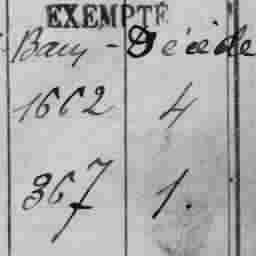 EXEMPTÉ
Bary - Décède
1662 4
367 1.